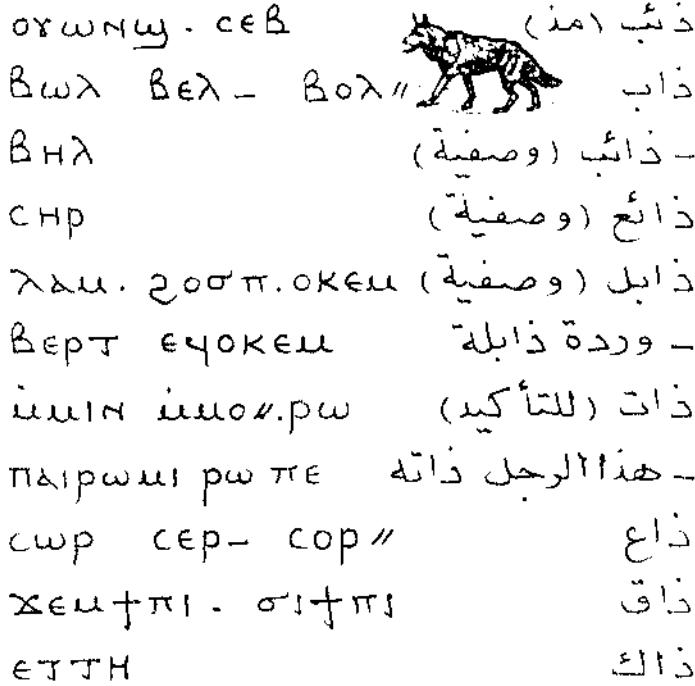 ⲟⲩⲱⲛϣ . ⲥⲉⲃ ذئب (مذ)
ⲃⲱⲗ ⲃⲉⲗ– ⲃⲟⲗ// ذاب
ⲃⲏⲗ – ذائب (وصفية)
ⲥⲏⲣ ذائع (وصفية)
ⲗⲁⲙ . ϩⲟϭⲡ . ⲟⲕⲉⲙ ذابل (وصفية)
ⲃⲉⲣⲧ ⲉϥⲟⲕⲉⲙ – وردة ذابلة
ⲙ̇ⲙⲓⲛ ⲙ̇ⲙⲟ// . ⲣⲱ ذات (للتأكيد)
ⲡⲁⲓⲣⲱⲙⲓ ⲣⲱ ⲡⲉ – هذا الرجل ذاته
ⲥⲱⲣ ⲥⲉⲣ– ⲥⲟⲣ// ذاع
ϫⲉⲙϯⲡⲓ . ϭⲓϯⲡⲓ ذاق
ⲉⲧⲧⲏ ذاك